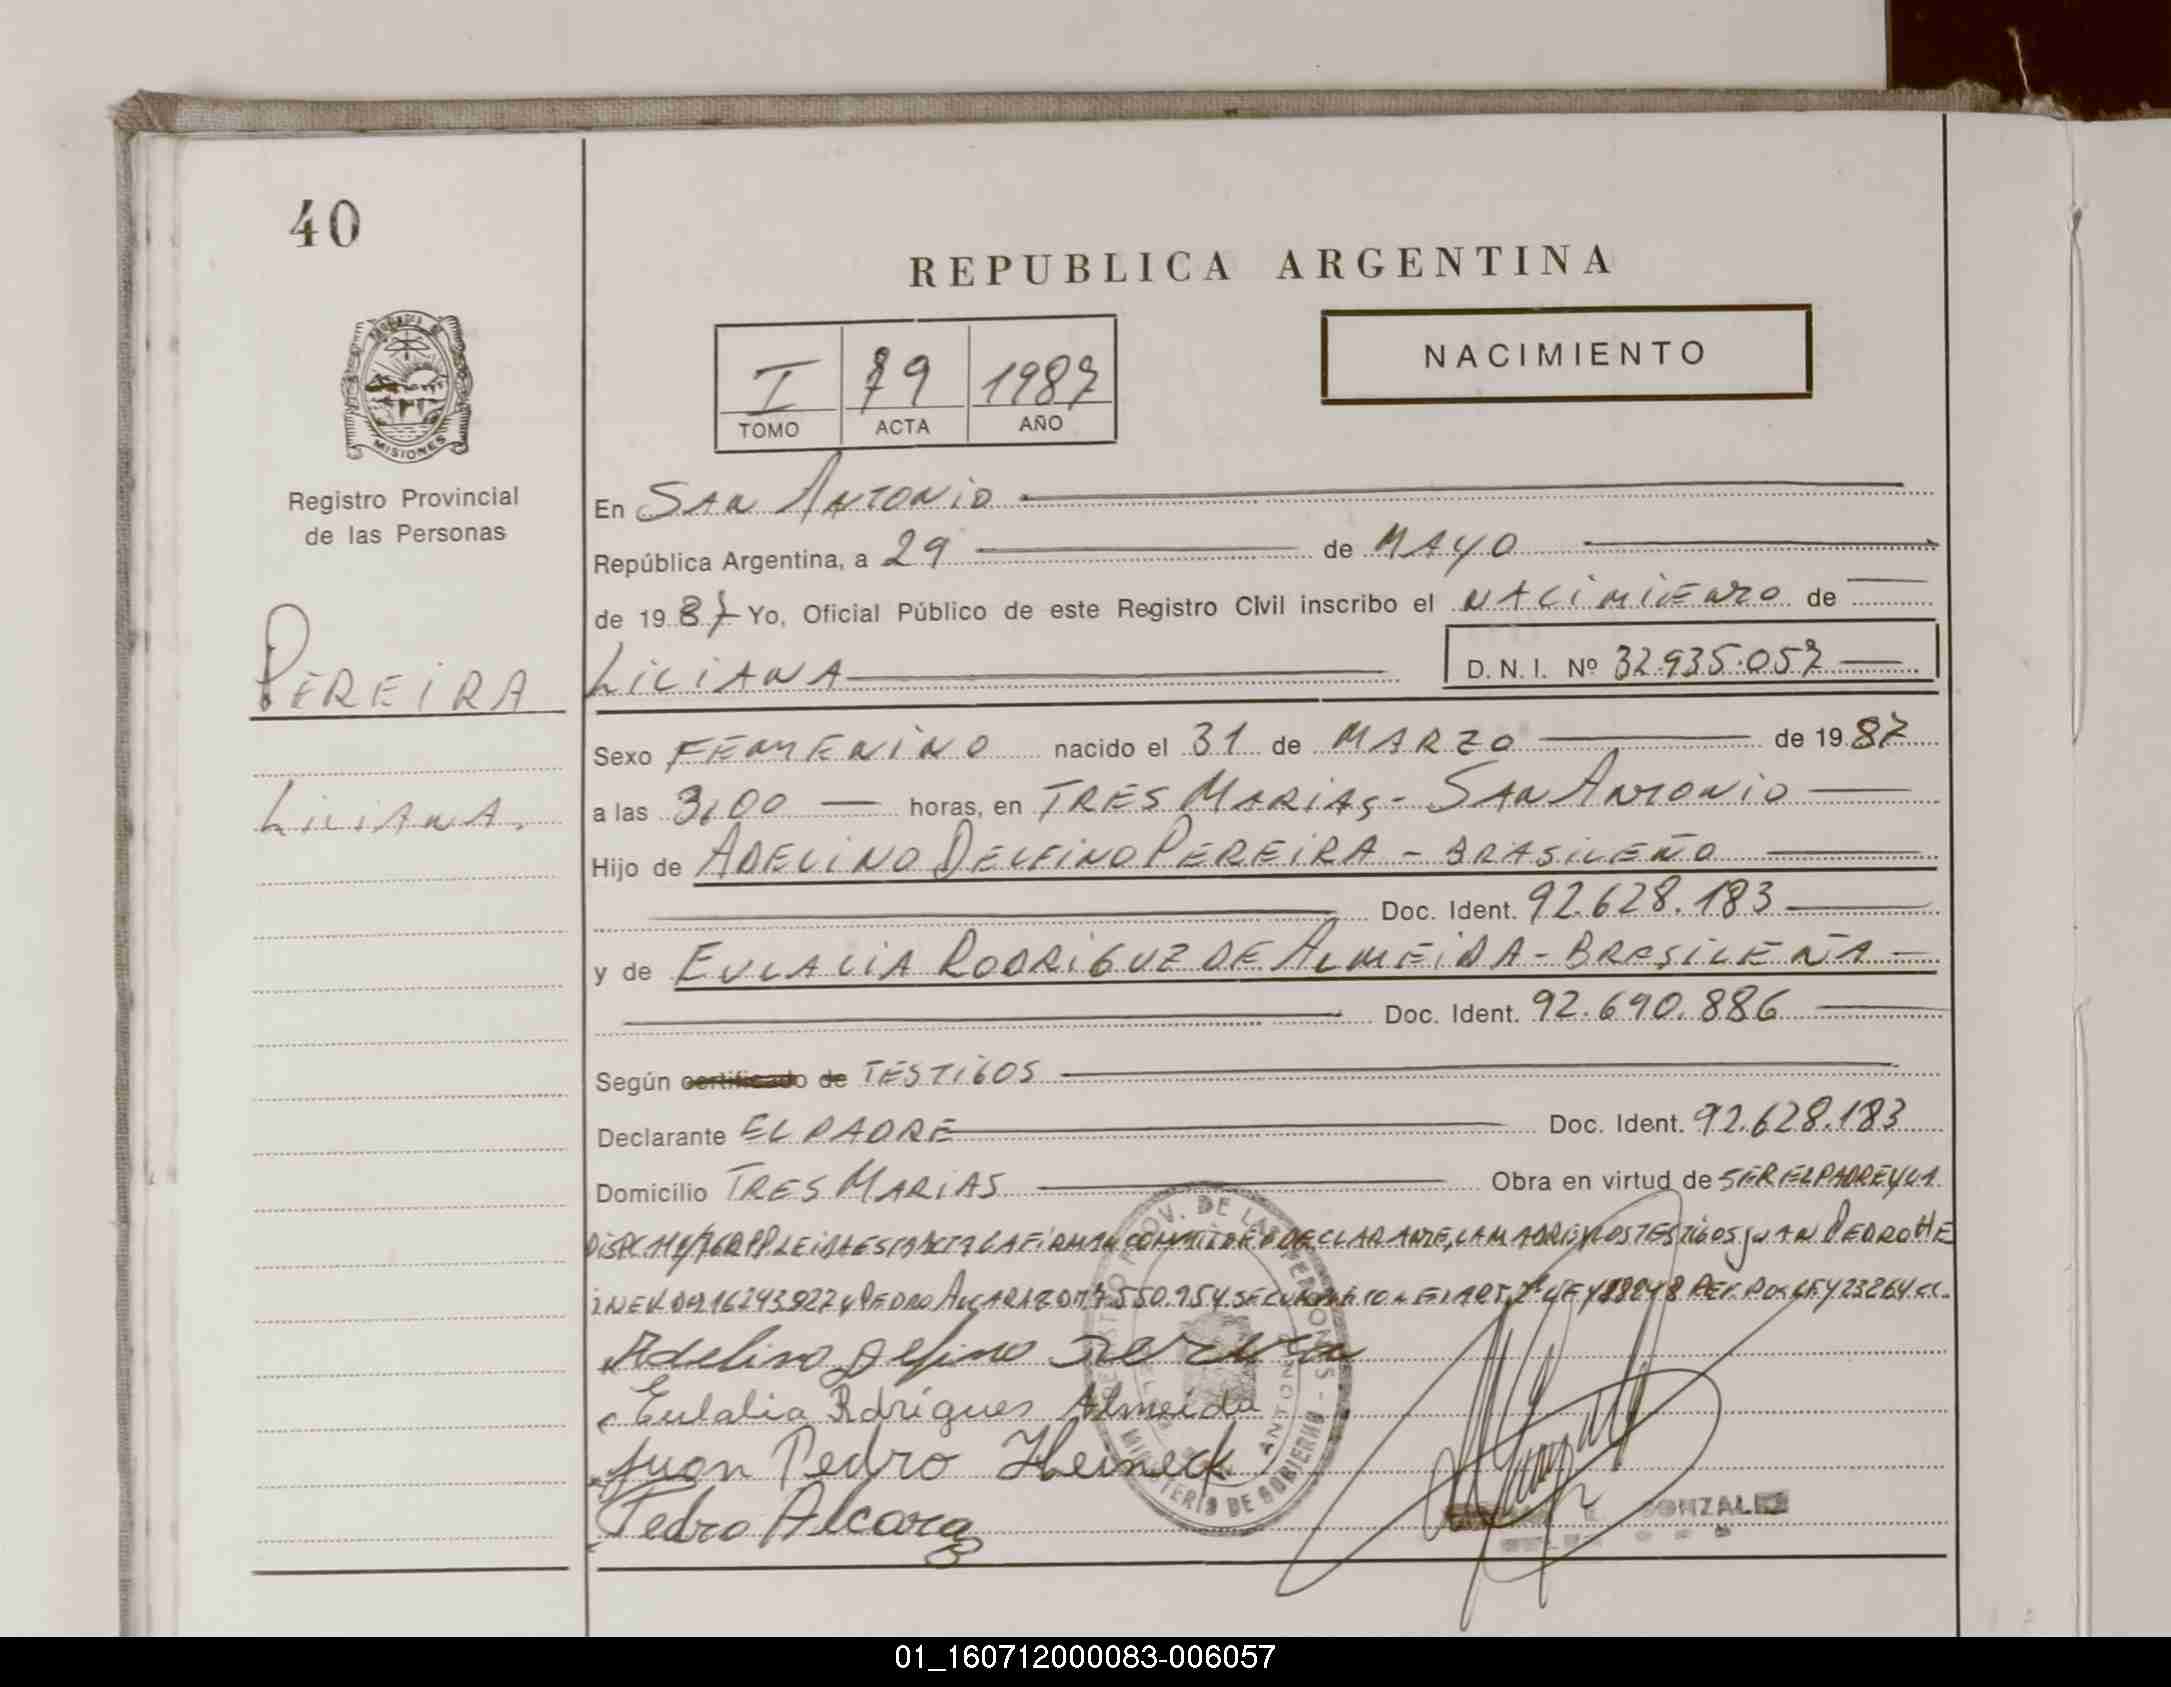 40
REPUBLICA ARGENTINA
NACIMIENTO
I 79 1987
TOMO ACTA AÑO
MISIONES
Registro Provincial
de las Personas
PEREIRA
LILIANA.
En SAN ANTONIO
República Argentina, a 29 de MAYO
de 1987 Yo, Oficial Público de este Registro Civil inscribo el NACIMIENTO de
LILIANA D.N.I. Nº 32.935.057
Sexo FEMENINO nacido el 31 de MARZO de 1987
a las 3,00 horas, en TRES MARIAS - SAN ANTONIO
Hijo de ADELINO DELFINO PEREIRA - BRASILEÑO
Doc. Ident. 92.628.183
y de EULALIA RODRIGUZ DE ALMEIDA - BRASILEÑA
Doc. Ident. 92.690.886
Según certificado de TESTIGOS
Declarante EL PADRE Doc. Ident. 92.628.183
Domicilio TRES MARIAS Obra en virtud de SER EL PADRE Y LA
LEIDA ESTA ACTA LA FIRMAN CONMIGO EL DECLARANTE, LA MADRE Y LOS TESTIGOS JUAN PEDRO HE
Y PEDRO ALCARAZ
Adelino Delfino Pereira
Eulalia Rdrigues Almeida
Juan Pedro Heineck
Pedro Alcaraz
GONZALEZ
MINISTERIO DE GOBIERNO
01_160712000083-006057